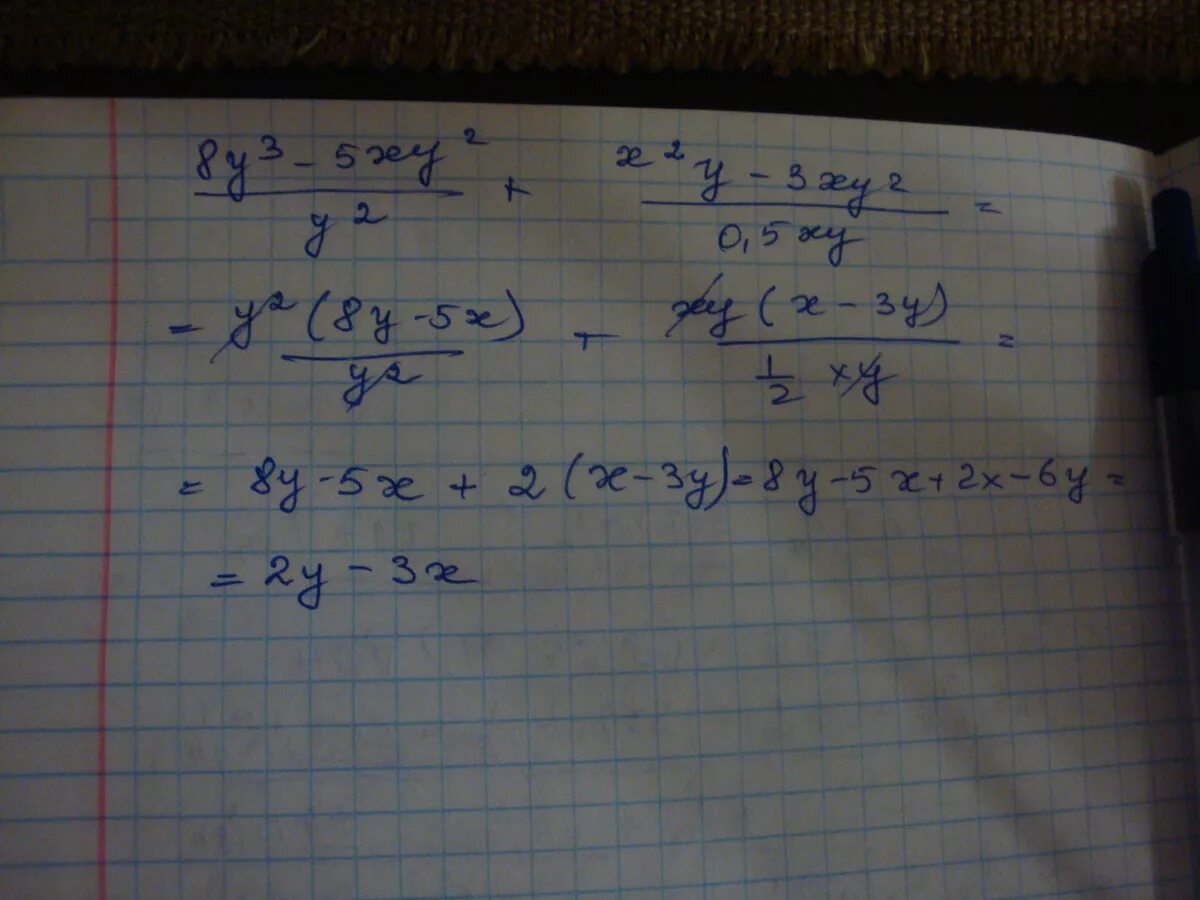 (8y³ - 5xy²)/y² + (x²y - 3xy²)/(0,5xy) =
= y²(8y - 5x)/y² + xy(x - 3y)/(1/2 xy) =
= 8y - 5x + 2(x - 3y) = 8y - 5x + 2x - 6y =
= 2y - 3x